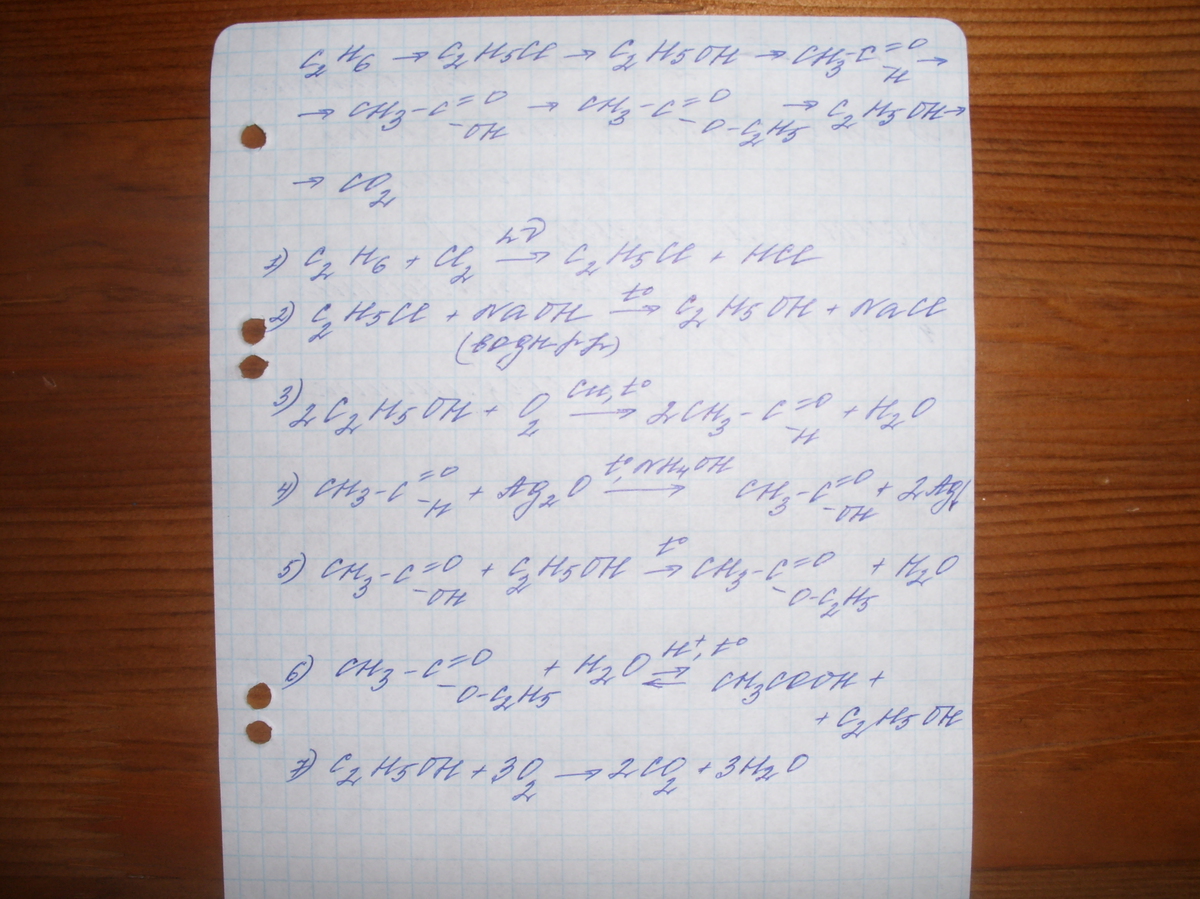 C₂H₆ → C₂H₅Cl → C₂H₅OH → CH₃-C=O-H →
→ CH₃-C=O-OH → CH₃-C=O-O-C₂H₅ → C₂H₅OH →
→ CO₂
1) C₂H₆ + Cl₂ hν→ C₂H₅Cl + HCl
2) C₂H₅Cl + NaOH t°→ C₂H₅OH + NaCl
(водн р-р)
3) 2C₂H₅OH + O₂ Cu, t°→ 2CH₃-C=O-H + H₂O
4) CH₃-C=O-H + Ag₂O t°, NH₄OH→ CH₃-C=O-OH + 2Ag↓
5) CH₃-C=O-OH + C₂H₅OH t°→ CH₃-C=O-O-C₂H₅ + H₂O
6) CH₃-C=O-O-C₂H₅ + H₂O H⁺, t°⇄ CH₃COOH +
+ C₂H₅OH
7) C₂H₅OH + 3O₂ → 2CO₂ + 3H₂O